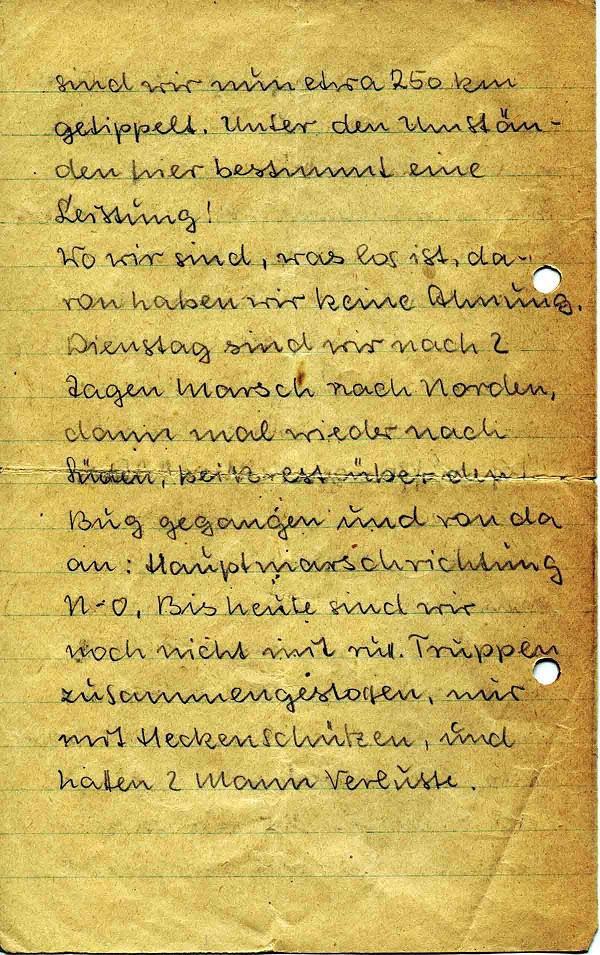 sind wir nun etwa 250 km
getippelt. Unter den Umstän-
den hier bestimmt eine
Leistung!
Wo wir sind, was los ist, da-
von haben wir keine Ahnung.
Dienstag sind wir nach 2
Tagen Marsch nach Norden,
dann mal wieder nach
Süden, bei Brest über den
Bug gegangen und von da
an: Hauptmarschrichtung
N-O. Bis heute sind wir
noch nicht mit russ. Truppen
zusammengestoßen, nur
mit Heckenschützen, und
hatten 2 Mann Verluste.